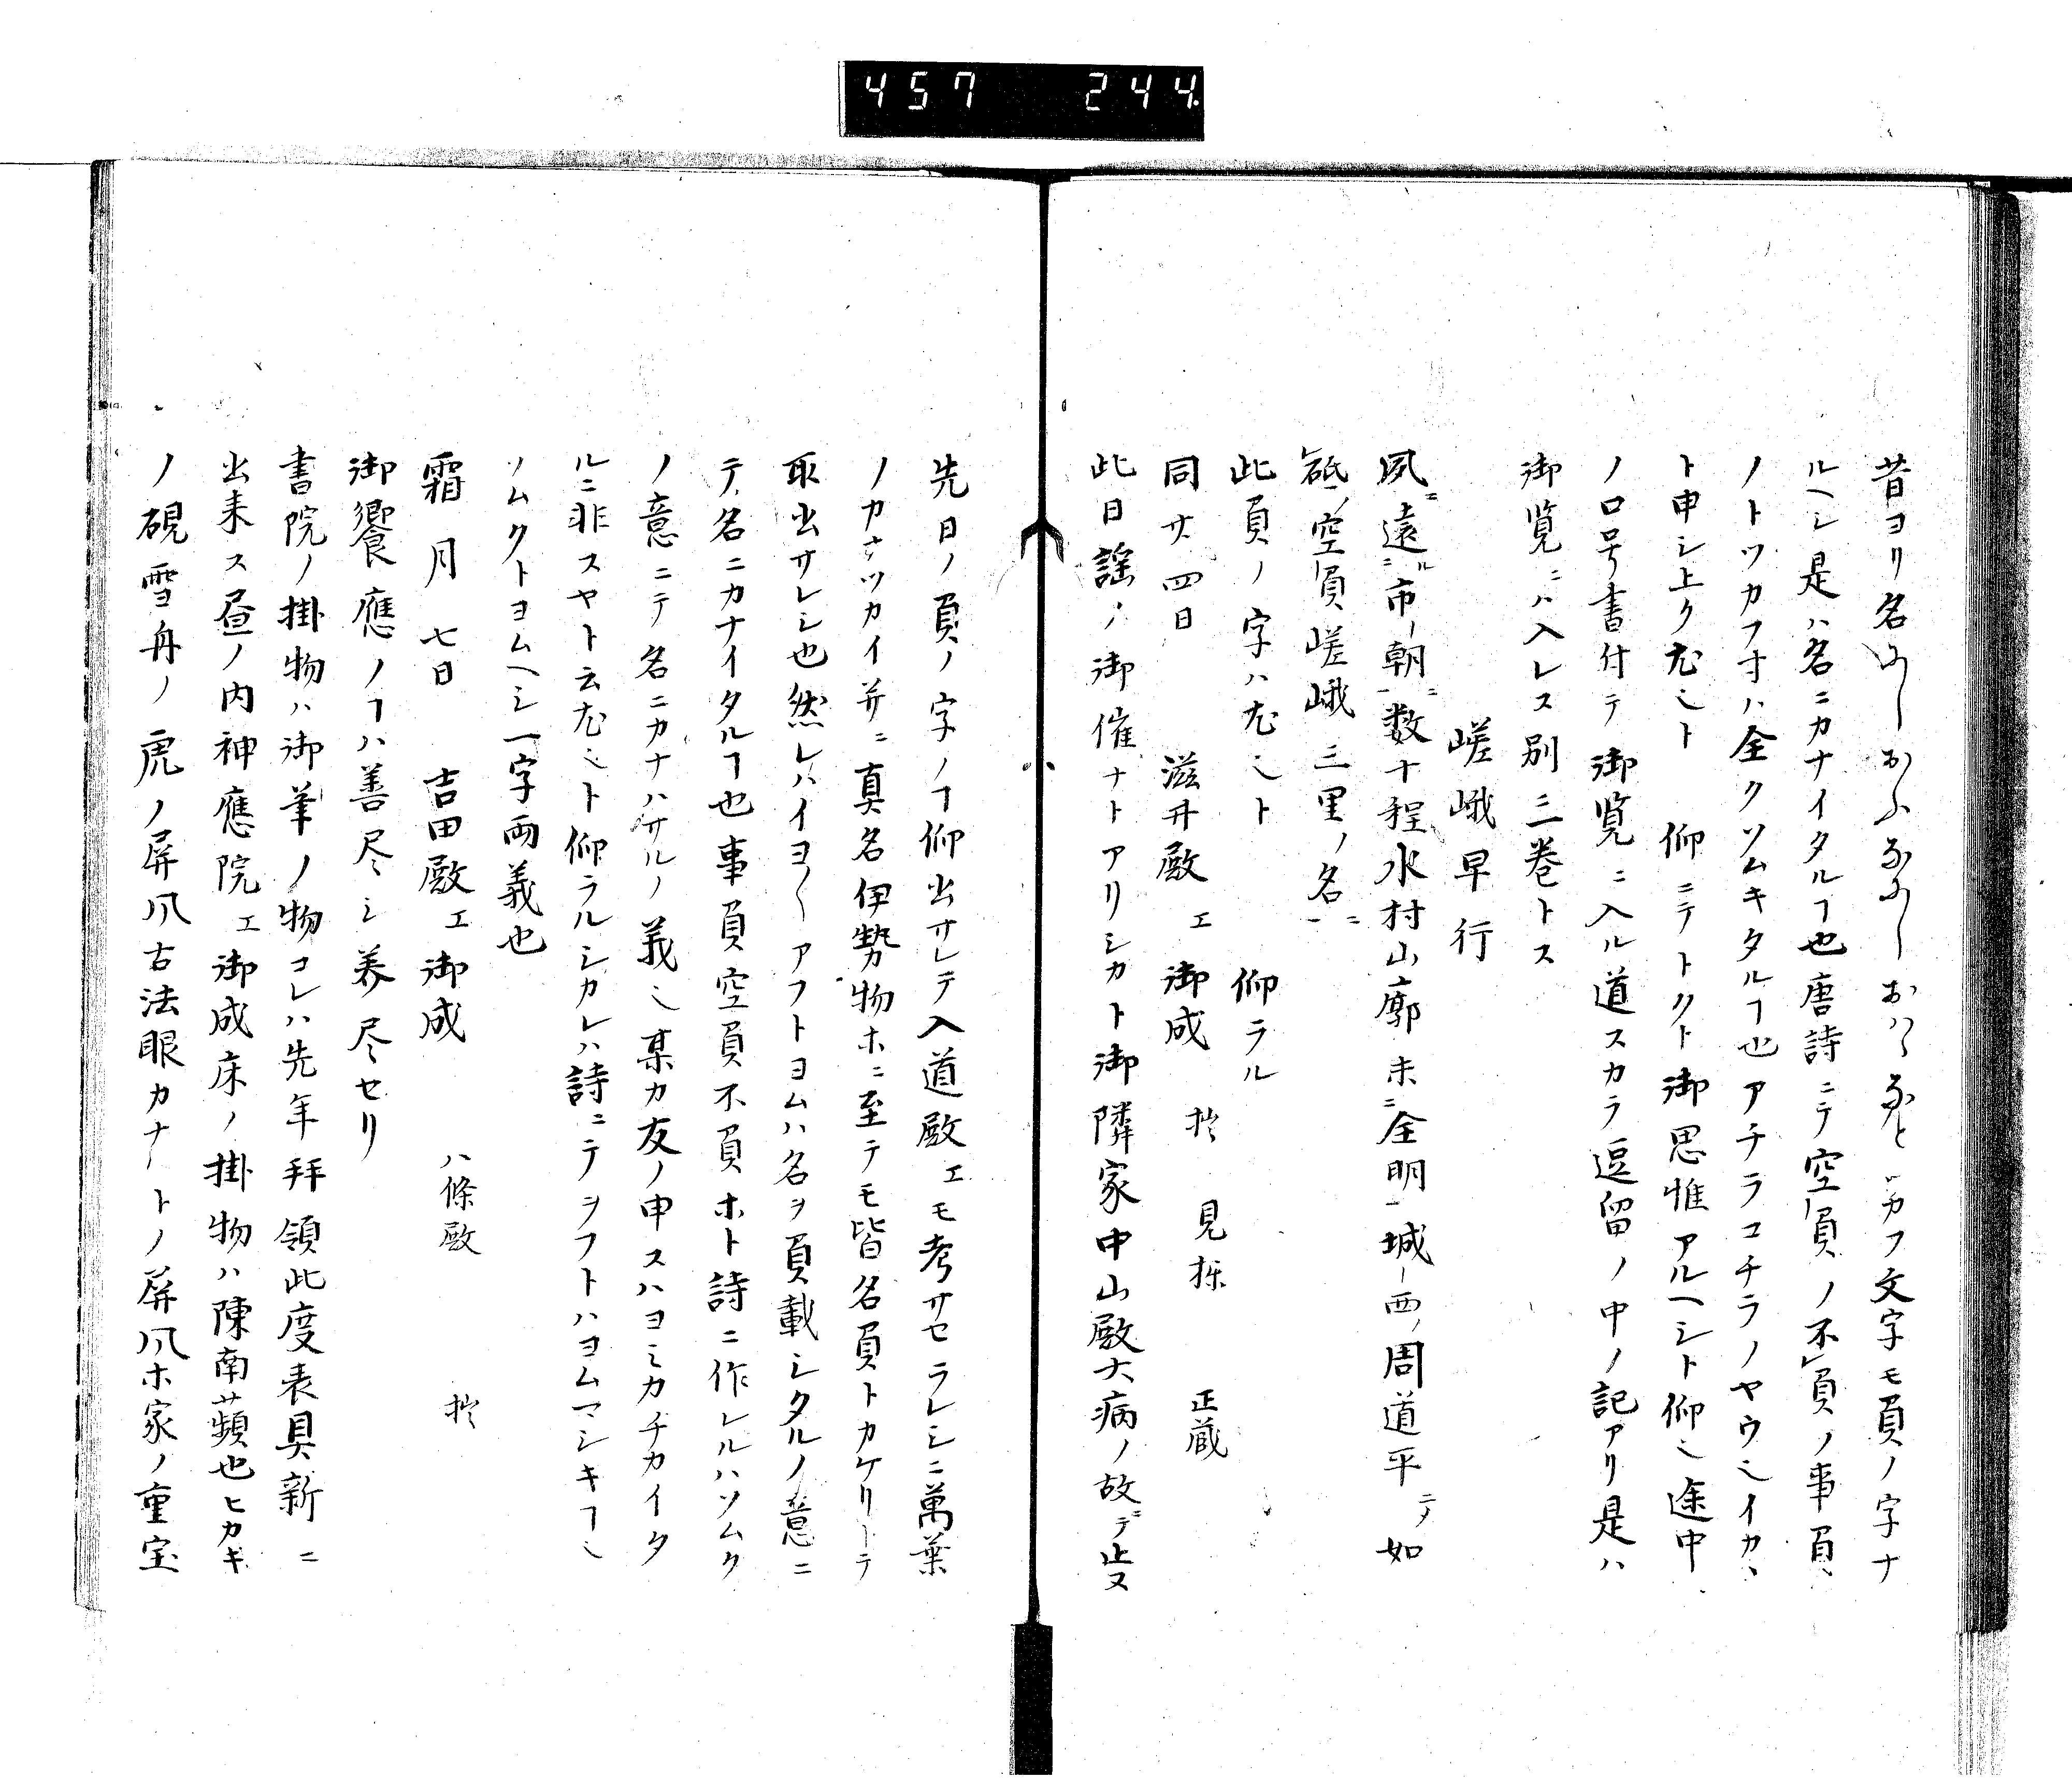 457 244
昔ヨリ名にしおふ名にしおハゝなと云カフ文字モ負ノ字ナ
ルヘシ是ハ名ニカナイタルヿ也唐詩ニテ空負ノ不負ノ事負
ノトツカフ寸ハ全クソムキタルヿ也アチラコチラノヤウ也イカヽ
ト申シ上ク尤也ト 仰ニテトクト御思惟アルヘシト仰也途中
ノ口号書付テ御覧ニ入ル道スカラ逗留ノ中ノ記アリ是ハ
御覧ニハ入レス別ニ巻トス
嵯峨早行
夙ニ遠ル市朝ニ数十程水村山廓未全明城西ノ周道平ニテ如
砥空負嵯峨三里ノ名
此負ノ字ハ尤也ト 仰ラル
同廿四日 滋井殿エ御成 拙 見採 正蔵
此日謡ノ御催ナトアリシカト御隣家中山殿大病ノ故ニテ止ヌ
先日ノ負ノ字ノヿ仰出サレテ入道殿エモ考サセラレシニ萬葉
ノカナツカイ并ニ真名伊勢物ホニ至テモ皆名負トカケリトテ
取出サレシ也然レハイヨ〱アフトヨムハ名ヲ負載シタルノ意ニ
テ名ニカナイタルヿ也事負空負不負ホト詩ニ作レルハソムク
ノ意ニテ名ニカナハサルノ義也某カ友ノ申スハヨミカチカイタ
ルニ非スヤト云尤也ト仰ラルシカレハ詩ニテヲフトハヨムマシキヿ也
ソムクトヨムヘシ一字両義也
霜月七日 吉田殿エ御成 八條殿 拙
御饗應ノヿハ善尽シ美尽セリ
書院ノ掛物ハ御筆ノ物コレハ先年拜領此度表具新ニ
出来ス昼ノ内神應院エ御成床ノ掛物ハ陳南蘋也ヒカキ
ノ硯雪舟ノ虎ノ屏風古法眼カナトノ屏風ホ家ノ重宝